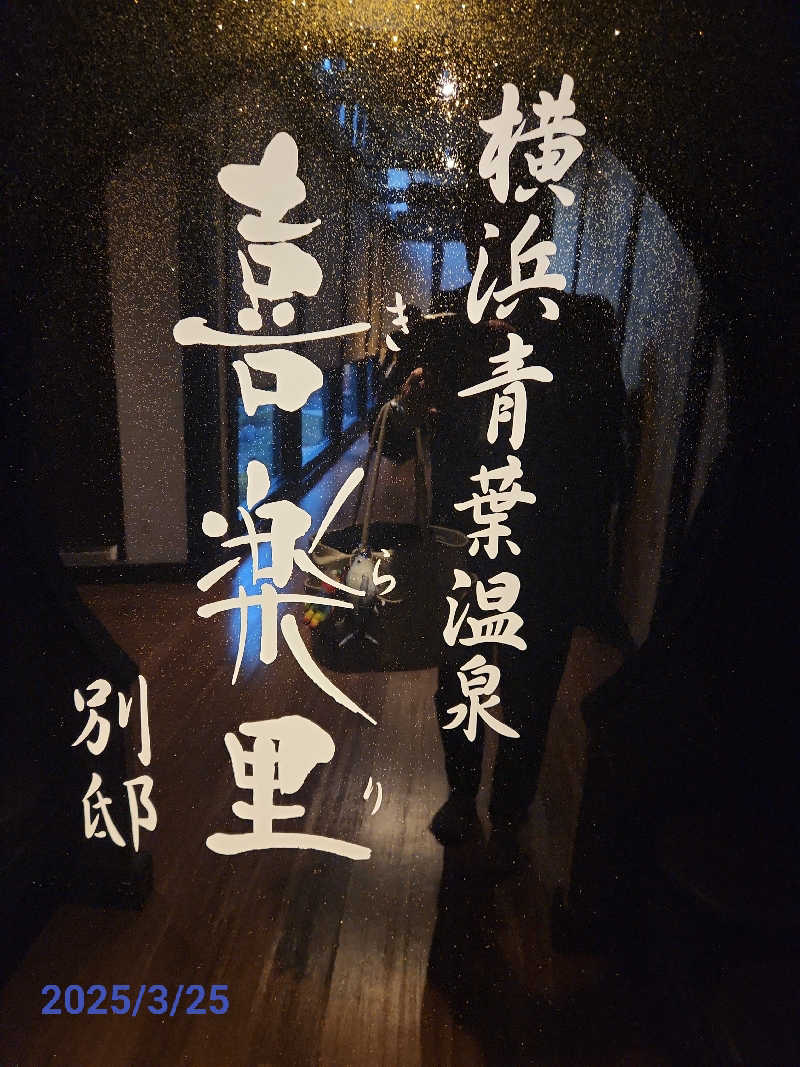 横浜青葉温泉
喜楽里
きらり
別邸
2025/3/25